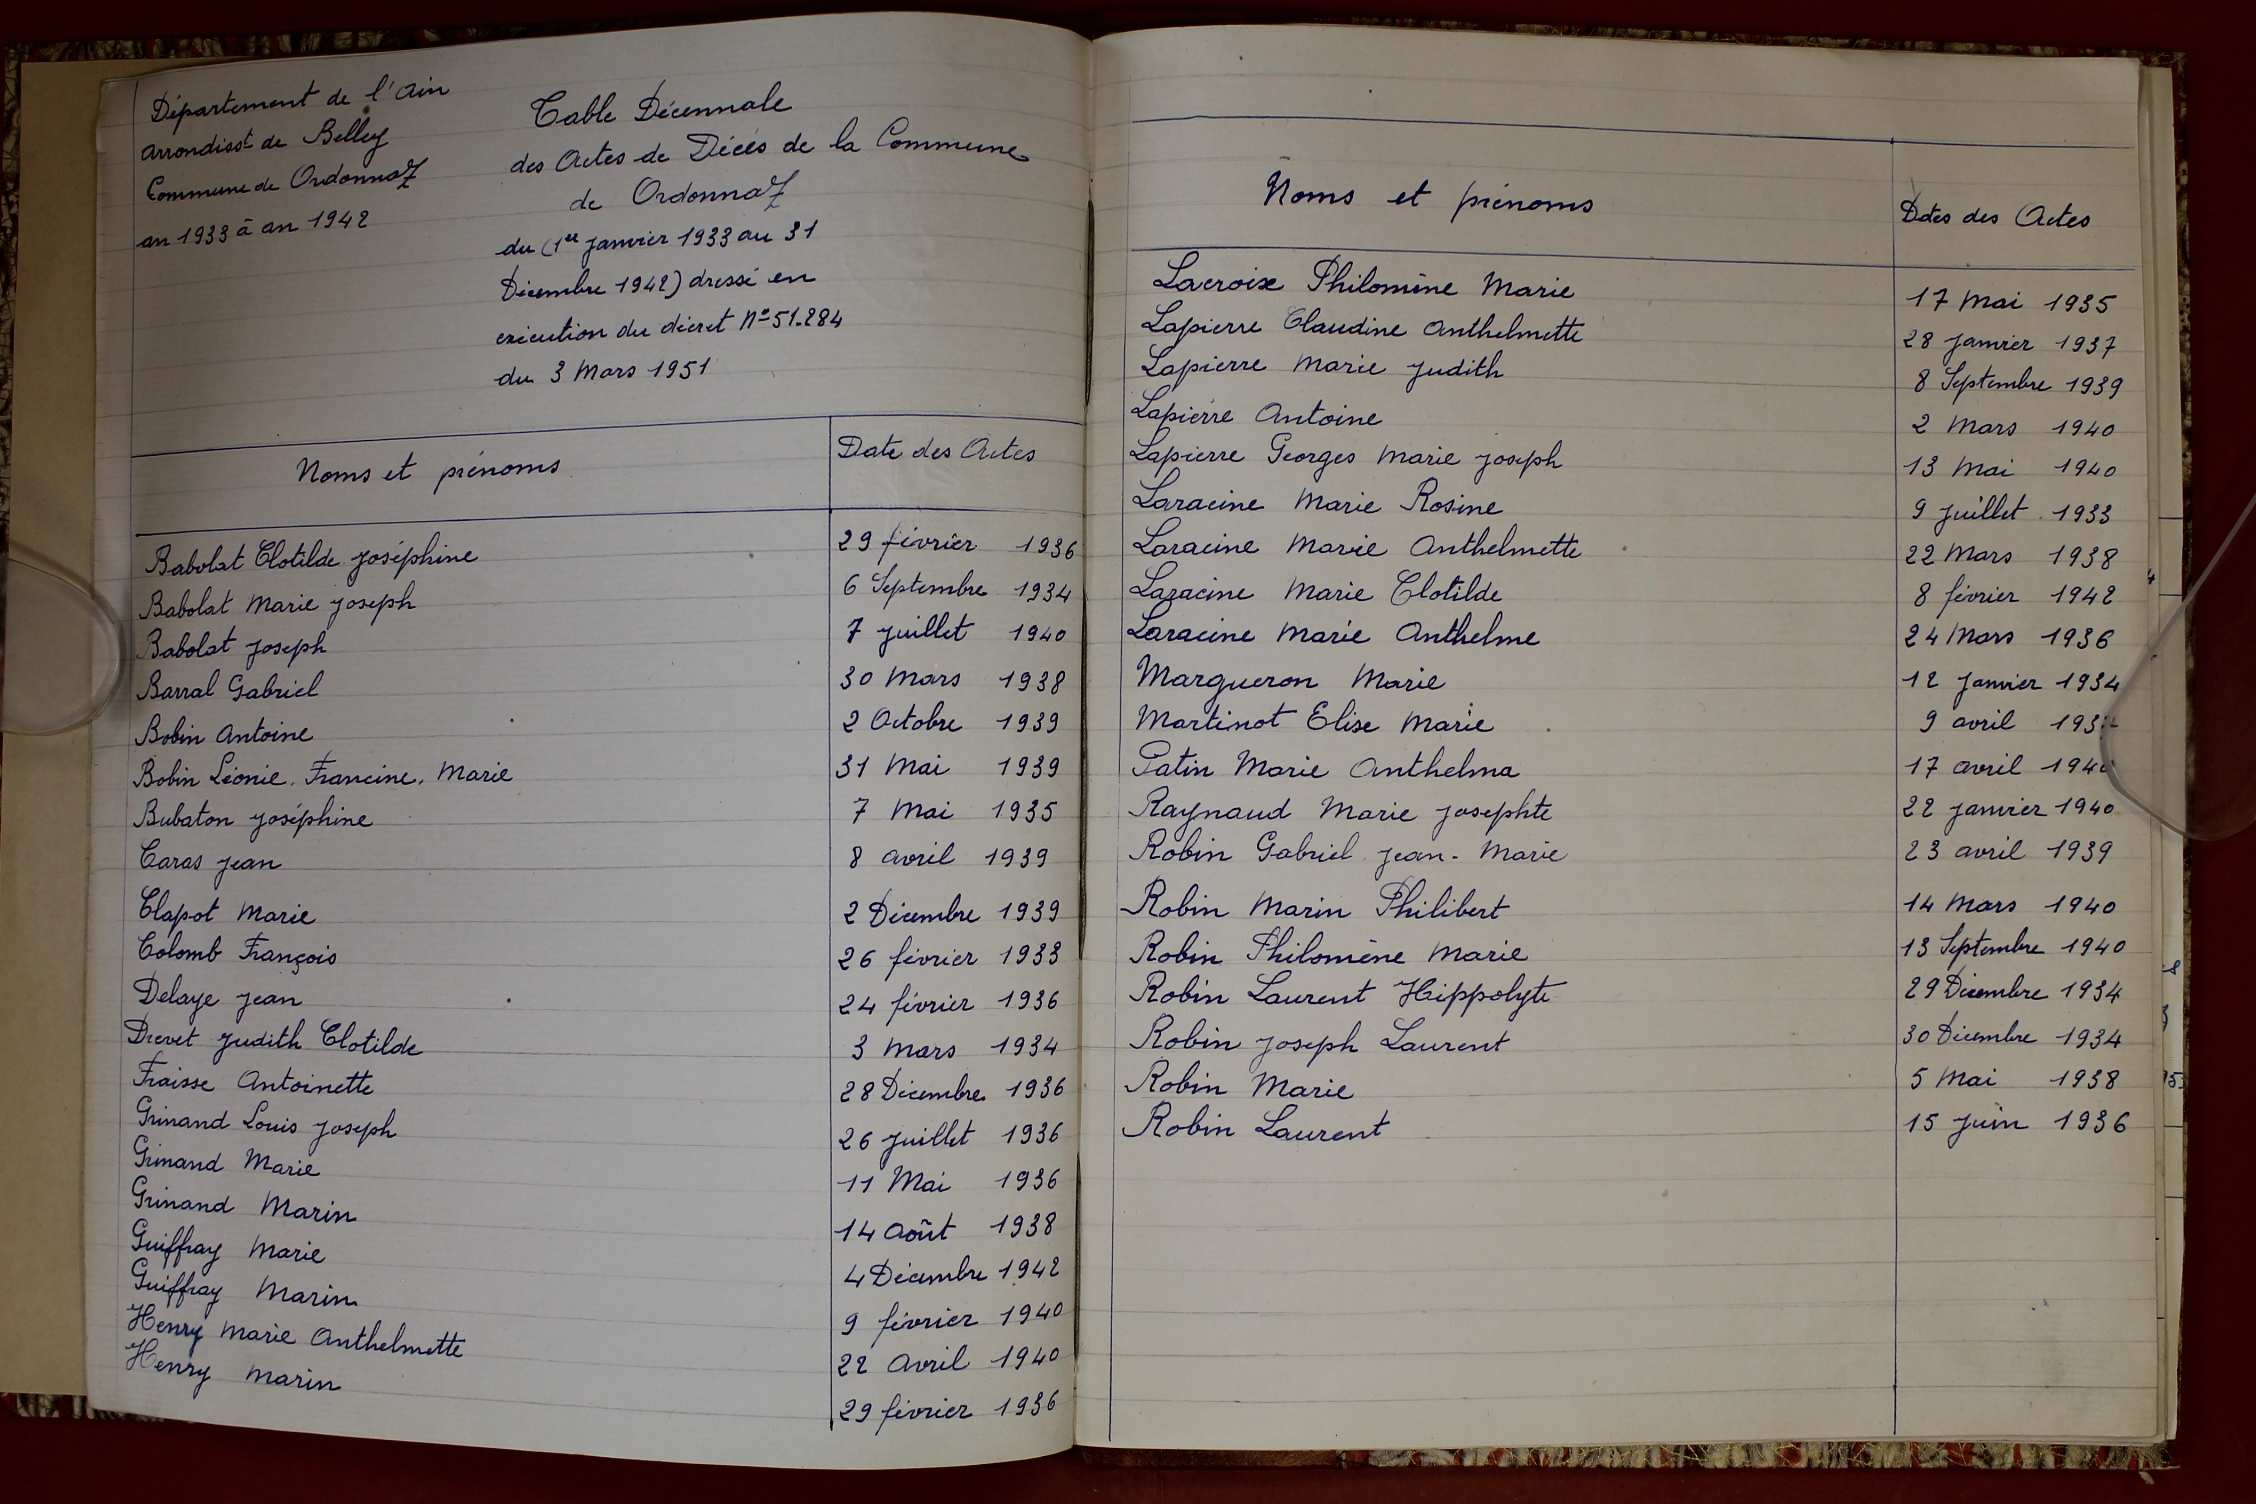 Département de l'Ain
Arrondisst de Belley
Commune de Ordonnaz
an 1933 à an 1942
Table Décennale
des Actes de Décès de la Commune
de Ordonnaz
du (1er Janvier 1933 au 31
Décembre 1942) dressé en
exécution du décret N° 51.284
du 3 Mars 1951
Noms et prénoms Date des Actes
Babolat Clotilde Joséphine 29 février 1936
Babolat Marie Joseph 6 Septembre 1934
Babolat Joseph 7 Juillet 1940
Barral Gabriel 30 Mars 1938
Bobin Antoine 2 Octobre 1939
Bobin Léonie. Francine. Marie 31 Mai 1939
Bubaton Joséphine 7 Mai 1935
Caras Jean 8 avril 1939
Clapot Marie 2 Décembre 1939
Colomb François 26 février 1933
Delaye Jean 24 février 1936
Drevet Judith Clotilde 3 Mars 1934
Fraisse Antoinette 28 Décembre 1936
Grinand Louis Joseph 26 Juillet 1936
Grinand Marie 11 Mai 1936
Grinand Marin 14 Août 1938
Guiffray Marie 4 Décembre 1942
Guiffray Marin 9 février 1940
Henry Marie Anthelmette 22 Avril 1940
Henry Marin 29 février 1936
Noms et prénoms Dates des Actes
Lacroix Philomène Marie 17 Mai 1935
Lapierre Claudine Anthelmette 28 Janvier 1937
Lapierre Marie Judith 8 Septembre 1939
Lapierre Antoine 2 Mars 1940
Lapierre Georges Marie Joseph 13 Mai 1940
Laracine Marie Rosine 9 Juillet 1933
Laracine Marie Anthelmette 22 Mars 1938
Laracine Marie Clotilde 8 février 1942
Laracine Marie Anthelme 24 Mars 1936
Margueron Marie 12 Janvier 1934
Martinot Elise Marie 9 avril
Patin Marie Anthelma 17 avril 1940
Raynaud Marie Josephte 22 Janvier 1940
Robin Gabriel Jean-Marie 23 avril 1939
Robin Marin Philibert 14 Mars 1940
Robin Philomène Marie 13 Septembre 1940
Robin Laurent Hippolyte 29 Décembre 1934
Robin Joseph Laurent 30 Décembre 1934
Robin Marie 5 Mai 1938
Robin Laurent 15 Juin 1936